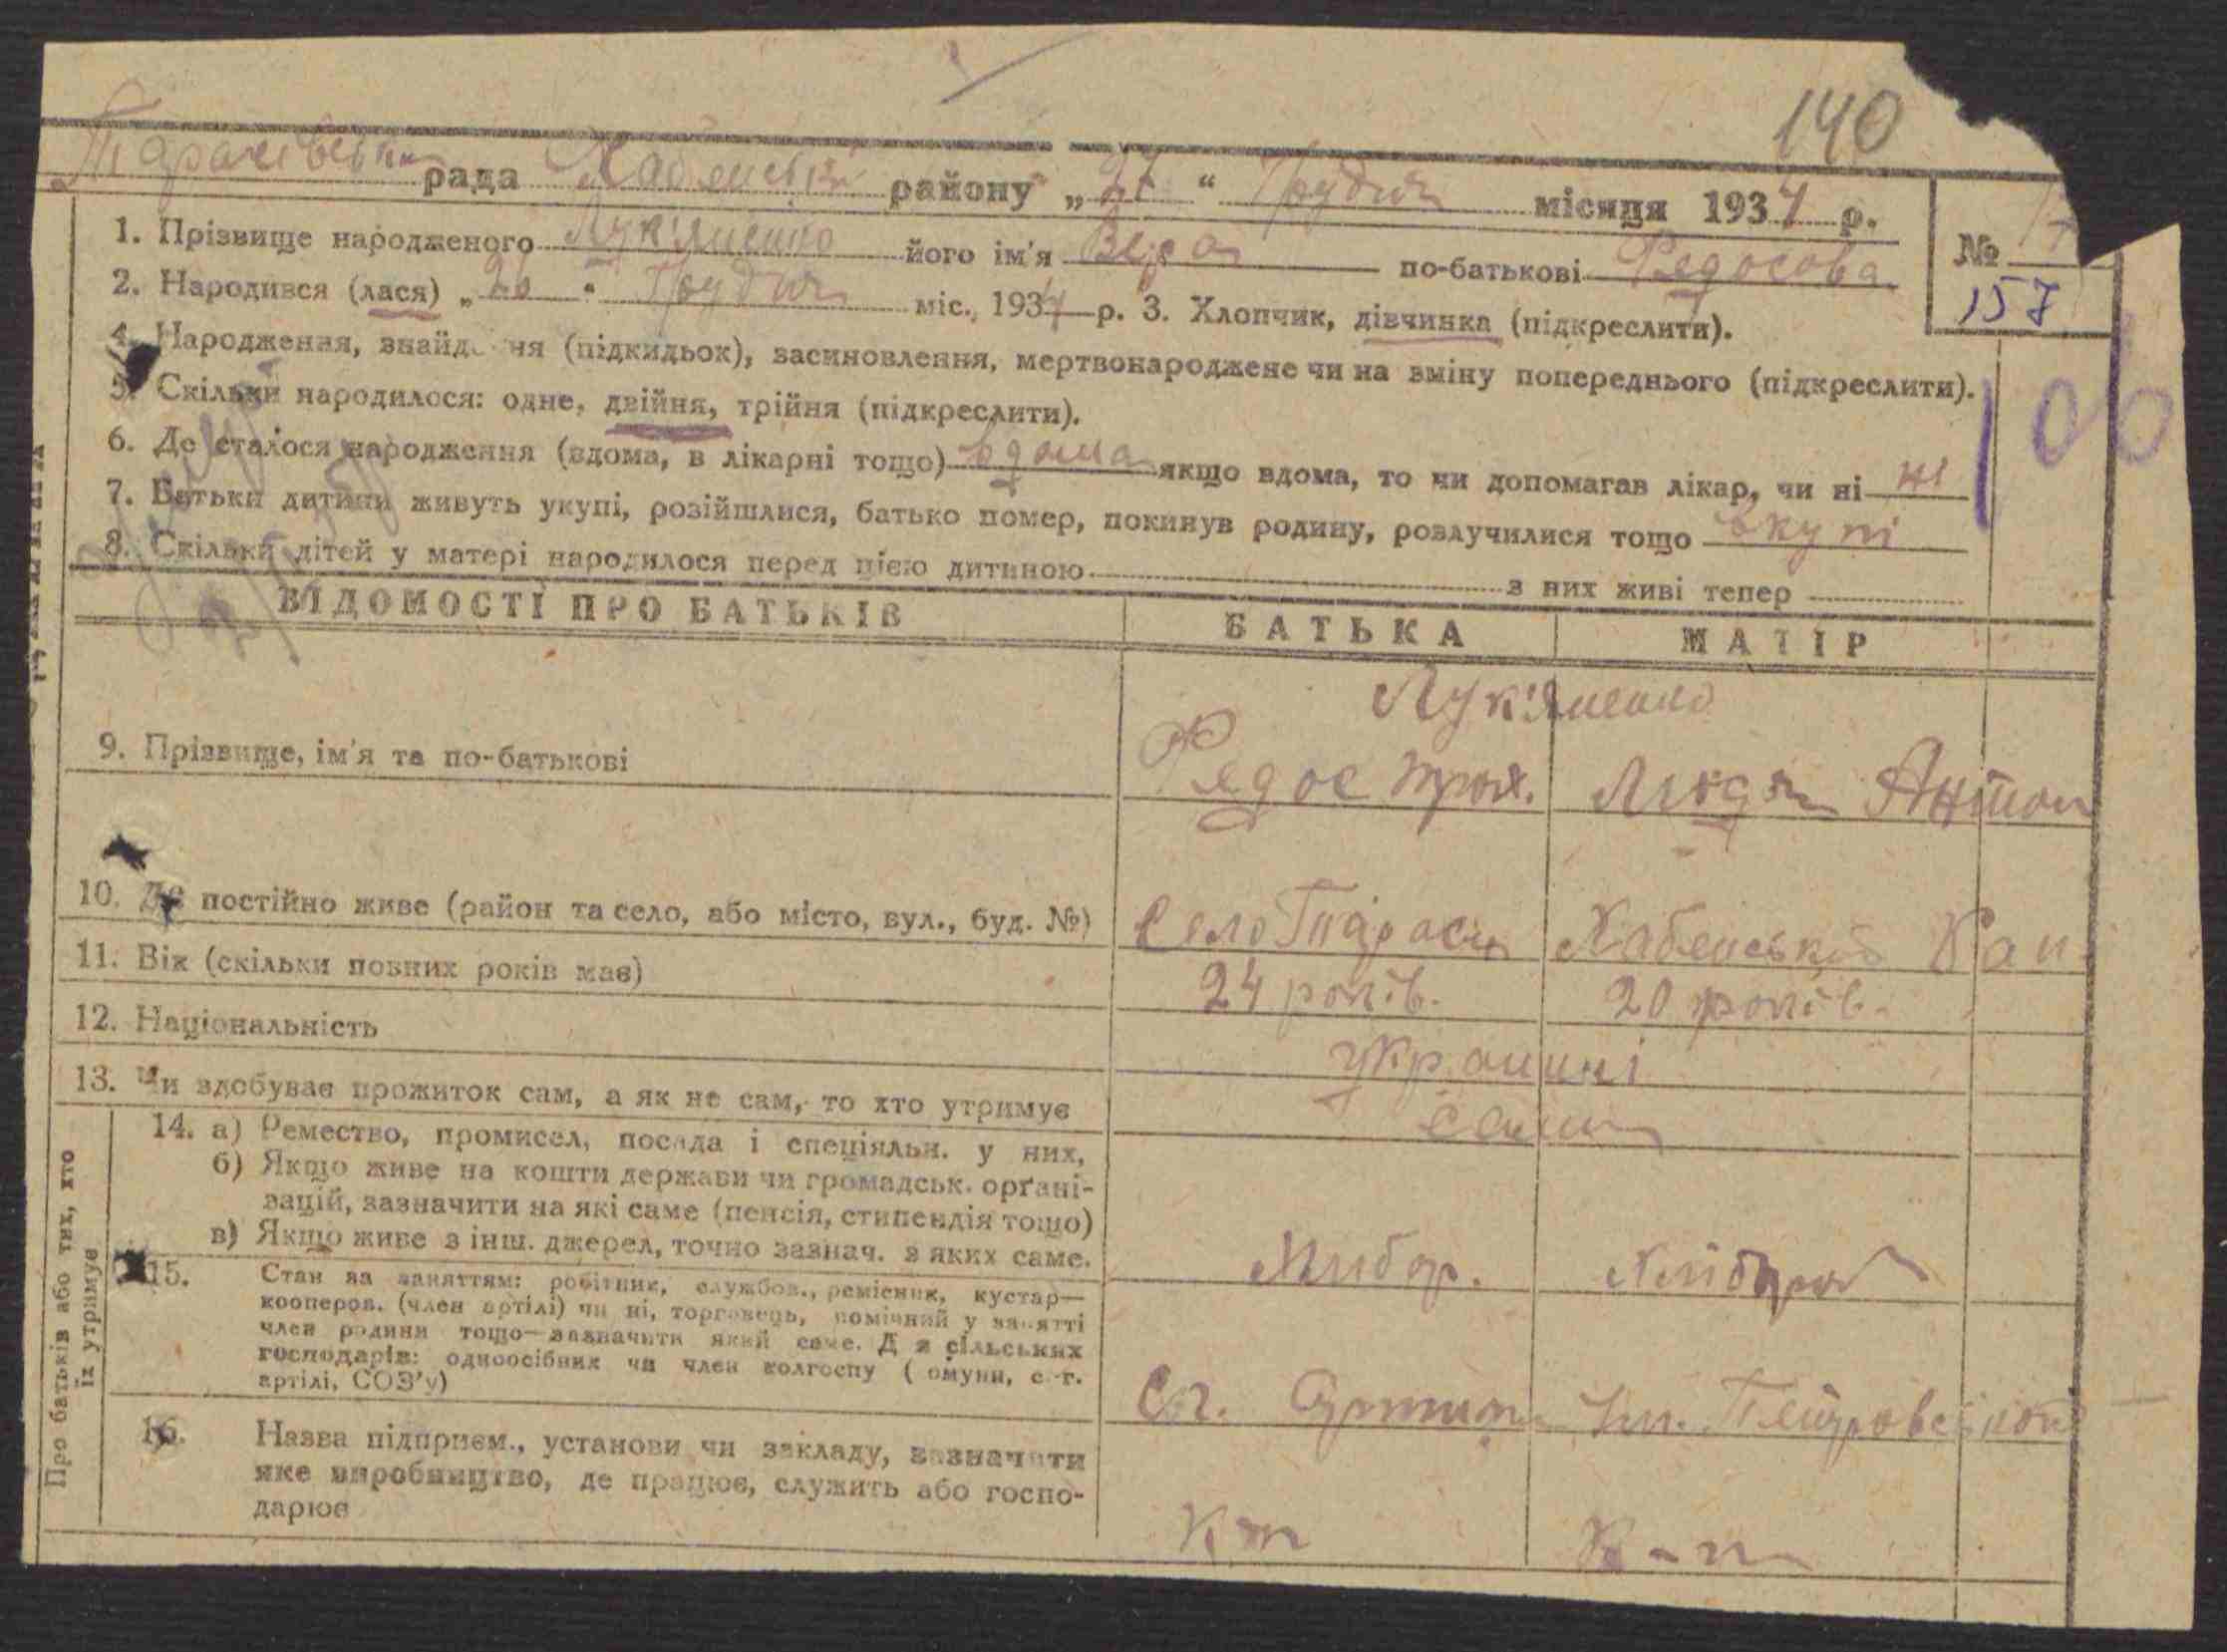 140
Тарасівська рада Хабенський району „27“ Грудня місяця 1934 р.
№
157
1. Прізвище народженого Лук'яненко його ім'я Вера по-батькові Федосова
2. Народився (лася) „26“ Грудня міс., 1934 р. 3. Хлопчик, дівчинка (підкреслити).
4. Народження, знайдення (підкидьок), засиновлення, мертвонароджене чи на зміну попереднього (підкреслити).
5. Скільки народилося: одне, двійня, трійня (підкреслити).
6. Де сталося народження (вдома, в лікарні тощо) вдома якщо вдома, то чи допомагав лікар, чи ні ні
7. Батьки дитини живуть укупі, розійшлися, батько помер, покинув родину, розлучилися тощо вкупі
8. Скільки дітей у матері народилося перед цією дитиною з них живі тепер
ВІДОМОСТІ ПРО БАТЬКІВ БАТЬКА МАТІР
Лук'яненко
9. Прізвище, ім'я та по-батькові Федос Троя. Лидя Антон
10. Де постійно живе (район та село, або місто, вул., буд. №) Село Тараси Хабенської Рай.
11. Вік (скільки повних років має) 24 років. 20 років.
12. Національність украинці
13. Чи здобуває прожиток сам, а як не сам, то хто утримує сами
Про батьків або тих, хто
їх утримує
14. а) Ремество, промисел, посада і спеціяльн. у них,
б) Якщо живе на кошти держави чи громадськ. орґані-
зацій, зазначити на які саме (пенсія, стипендія тощо)
в) Якщо живе з інш. джерел, точно зазнач. з яких саме. Хлибор. Хлибороб
15. Стан за заняттям: робітник, службов., ремісник, кустар—
кооперов. (член артілі) чи ні, торговець, помічний у занятті
член родини тощо—зазначити який саме. Для сільських
господарів: одноосібник чи член колгоспу (комуни, с.-г.
артілі, СОЗ'у) С.г. Артиль Им. Петровського
16. Назва підприєм., установи чи закладу, зазначити
яке виробництво, де працює, служить або госпо-
дарює К-п К-п